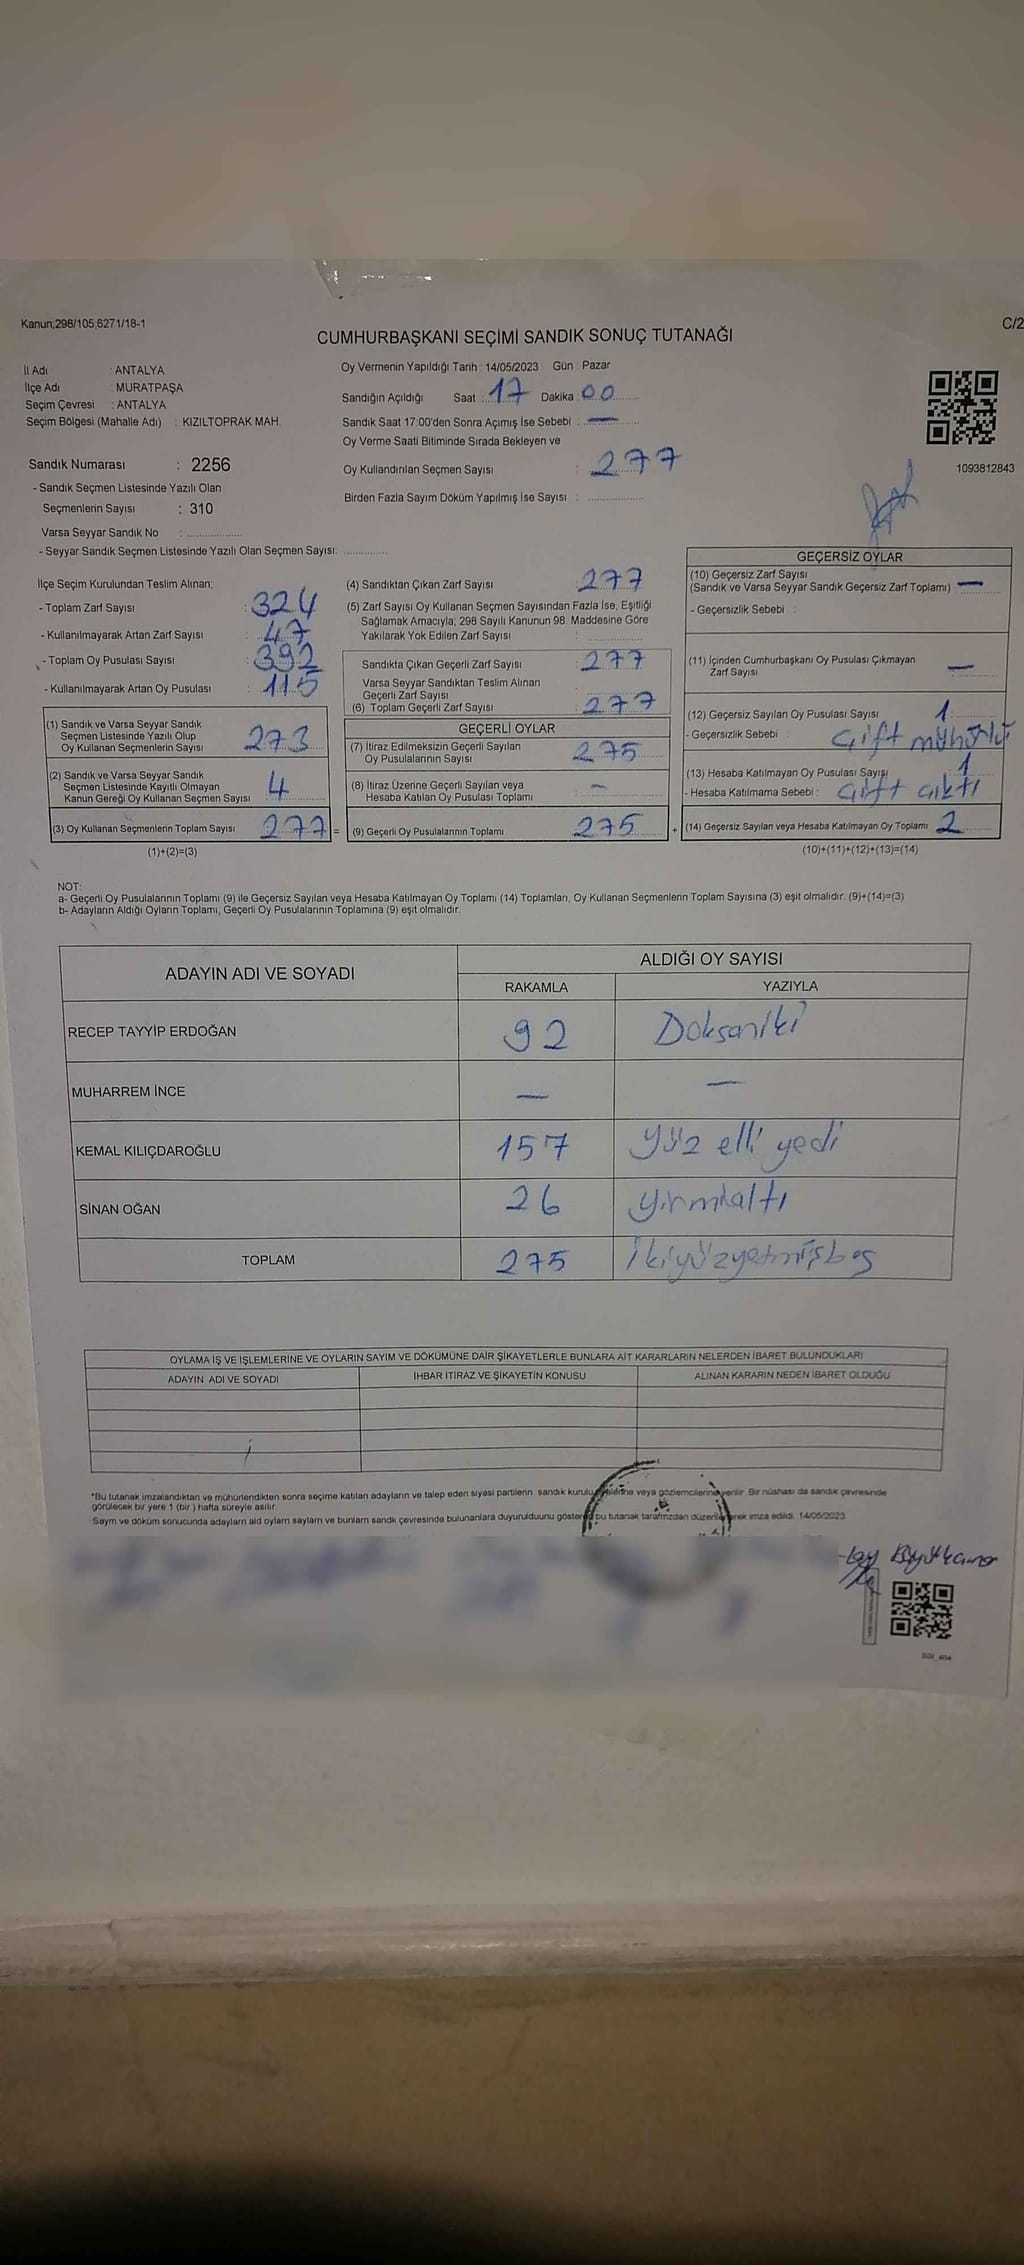 Kanun;298/105;6271/18-1
C/2
CUMHURBAŞKANI SEÇİMİ SANDIK SONUÇ TUTANAĞI
İl Adı : ANTALYA
İlçe Adı : MURATPAŞA
Seçim Çevresi : ANTALYA
Seçim Bölgesi (Mahalle Adı) : KIZILTOPRAK MAH.
Sandık Numarası : 2256
- Sandık Seçmen Listesinde Yazılı Olan
Seçmenlerin Sayısı : 310
Varsa Seyyar Sandık No : ..................
- Seyyar Sandık Seçmen Listesinde Yazılı Olan Seçmen Sayısı: .............
Oy Vermenin Yapıldığı Tarih : 14/05/2023 Gün : Pazar
Sandığın Açıldığı Saat : 17 Dakika : 00
Sandık Saat 17:00'den Sonra Açımış İse Sebebi : —
Oy Verme Saati Bitiminde Sırada Bekleyen ve
Oy Kullandırılan Seçmen Sayısı : 277
Birden Fazla Sayım Döküm Yapılmış İse Sayısı : ................
1093812843
İlçe Seçim Kurulundan Teslim Alınan;
- Toplam Zarf Sayısı : 324
- Kullanılmayarak Artan Zarf Sayısı : 47
- Toplam Oy Pusulası Sayısı : 392
- Kullanılmayarak Artan Oy Pusulası : 115
(1) Sandık ve Varsa Seyyar Sandık
Seçmen Listesinde Yazılı Olup
Oy Kullanan Seçmenlerin Sayısı 273
(2) Sandık ve Varsa Seyyar Sandık
Seçmen Listesinde Kayıtlı Olmayan
Kanun Gereği Oy Kullanan Seçmen Sayısı 4
(3) Oy Kullanan Seçmenlerin Toplam Sayısı 277 =
(1)+(2)=(3)
(4) Sandıktan Çıkan Zarf Sayısı : 277
(5) Zarf Sayısı Oy Kullanan Seçmen Sayısından Fazla İse, Eşitliği
Sağlamak Amacıyla; 298 Sayılı Kanunun 98. Maddesine Göre
Yakılarak Yok Edilen Zarf Sayısı :
Sandıkta Çıkan Geçerli Zarf Sayısı : 277
Varsa Seyyar Sandıktan Teslim Alınan
Geçerli Zarf Sayısı
(6) Toplam Geçerli Zarf Sayısı : 277
GEÇERLİ OYLAR
(7) İtiraz Edilmeksizin Geçerli Sayılan
Oy Pusulalarının Sayısı 275
(8) İtiraz Üzerine Geçerli Sayılan veya
Hesaba Katılan Oy Pusulası Toplamı —
(9) Geçerli Oy Pusulalarının Toplamı 275 +
GEÇERSİZ OYLAR
(10) Geçersiz Zarf Sayısı
(Sandık ve Varsa Seyyar Sandık Geçersiz Zarf Toplamı) : —
- Geçersizlik Sebebi :
(11) İçinden Cumhurbaşkanı Oy Pusulası Çıkmayan
Zarf Sayısı —
(12) Geçersiz Sayılan Oy Pusulası Sayısı 1
- Geçersizlik Sebebi : Çift mühürlü
(13) Hesaba Katılmayan Oy Pusulası Sayısı 1
- Hesaba Katılmama Sebebi : Çift çıktı
(14) Geçersiz Sayılan veya Hesaba Katılmayan Oy Toplamı 2
(10)+(11)+(12)+(13)=(14)
NOT:
a- Geçerli Oy Pusulalarının Toplamı (9) ile Geçersiz Sayılan veya Hesaba Katılmayan Oy Toplamı (14) Toplamları, Oy Kullanan Seçmenlerin Toplam Sayısına (3) eşit olmalıdır. (9)+(14)=(3)
b- Adayların Aldığı Oyların Toplamı, Geçerli Oy Pusulalarının Toplamına (9) eşit olmalıdır.
ADAYIN ADI VE SOYADI
ALDIĞI OY SAYISI
RAKAMLA YAZIYLA
RECEP TAYYİP ERDOĞAN 92 Doksaniki
MUHARREM İNCE — —
KEMAL KILIÇDAROĞLU 157 yüz elli yedi
SİNAN OĞAN 26 yirmialtı
TOPLAM 275 ikiyüzyetmişbeş
OYLAMA İŞ VE İŞLEMLERİNE VE OYLARIN SAYIM VE DÖKÜMÜNE DAİR ŞİKAYETLERLE BUNLARA AİT KARARLARIN NELERDEN İBARET BULUNDUKLARI
ADAYIN ADI VE SOYADI İHBAR İTİRAZ VE ŞİKAYETİN KONUSU ALINAN KARARIN NEDEN İBARET OLDUĞU
*Bu tutanak imzalandıktan ve mühürlendikten sonra seçime katılan adayların ve talep eden siyasi partilerin sandık kurulu veya gözlemcilerine verilir. Bir nüshası da sandık çevresinde
görülecek bir yere 1 (bir ) hafta süreyle asılır.
Sayım ve döküm sonucunda adayların ald oyların sayların ve bunların sandk çevresinde bulunanlara duyurulduunu gösteren bu tutanak tarafmzdan düzenlenerek imza edildi. 14/05/2023